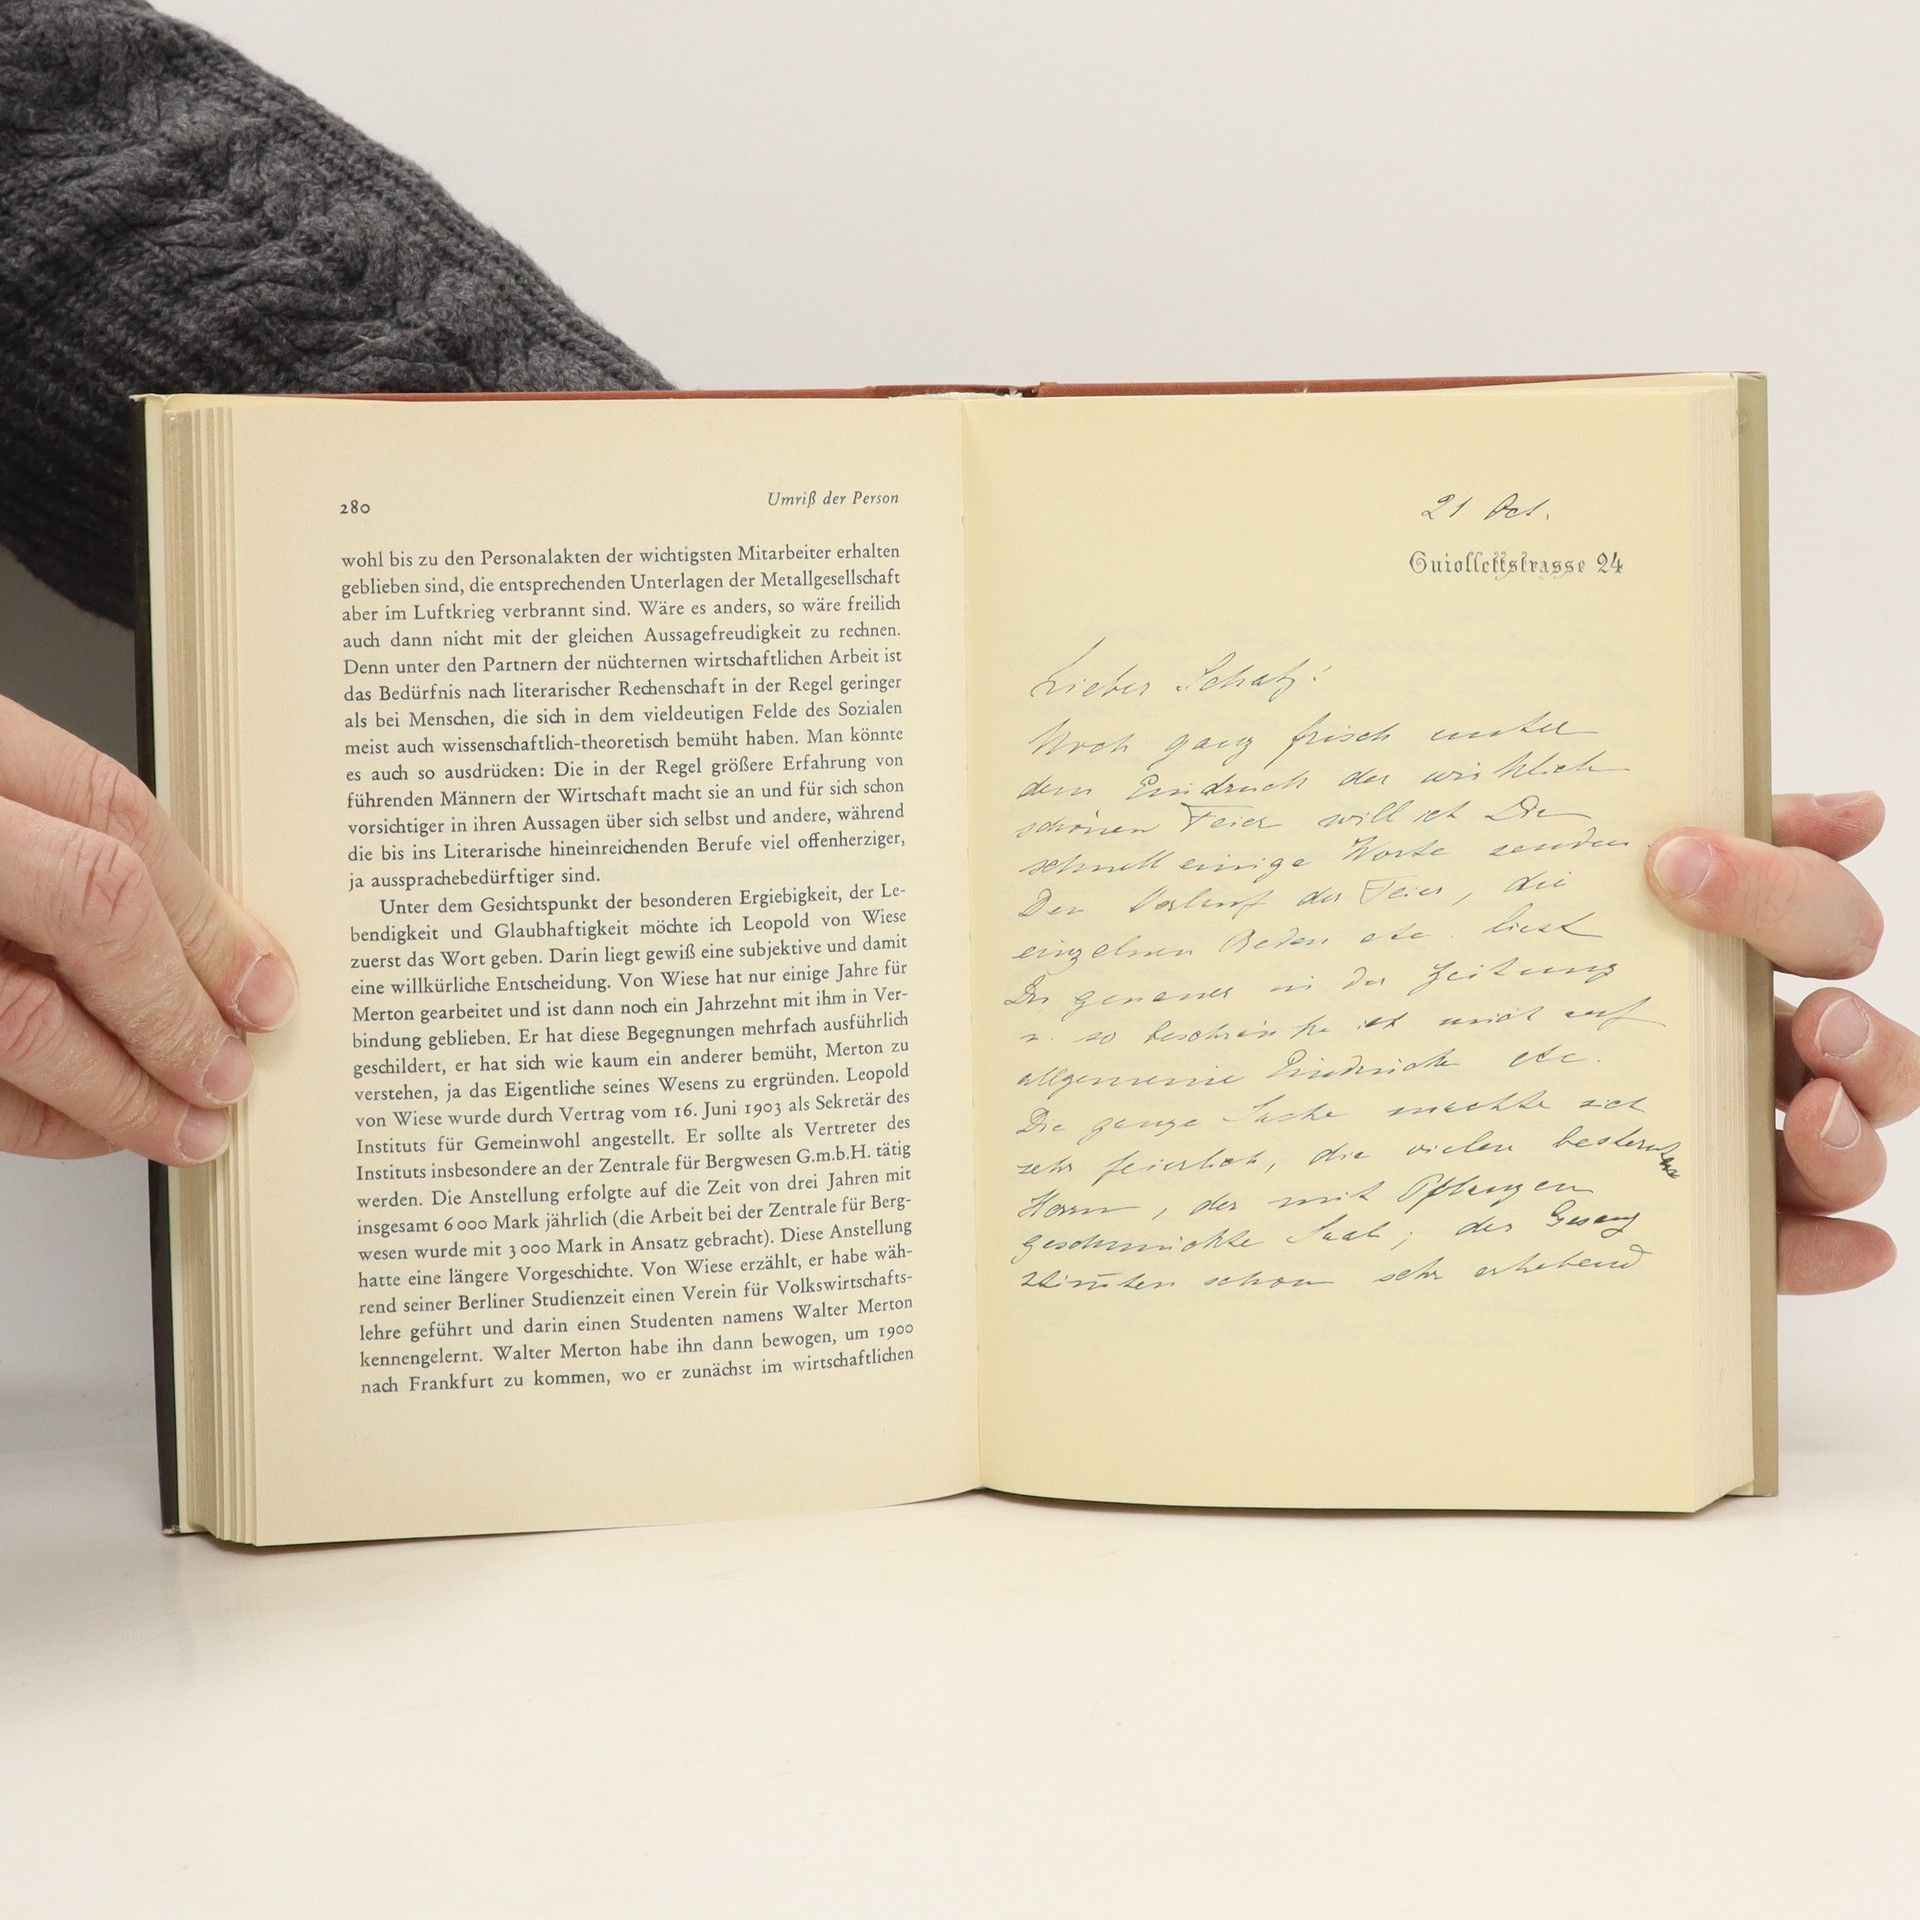 280
Umriß der Person
wohl bis zu den Personalakten der wichtigsten Mitarbeiter erhalten
geblieben sind, die entsprechenden Unterlagen der Metallgesellschaft
aber im Luftkrieg verbrannt sind. Wäre es anders, so wäre freilich
auch dann nicht mit der gleichen Aussagefreudigkeit zu rechnen.
Denn unter den Partnern der nüchternen wirtschaftlichen Arbeit ist
das Bedürfnis nach literarischer Rechenschaft in der Regel geringer
als bei Menschen, die sich in dem vieldeutigen Felde des Sozialen
meist auch wissenschaftlich-theoretisch bemüht haben. Man könnte
es auch so ausdrücken: Die in der Regel größere Erfahrung von
führenden Männern der Wirtschaft macht sie an und für sich schon
vorsichtiger in ihren Aussagen über sich selbst und andere, während
die bis ins Literarische hineinreichenden Berufe viel offenherziger,
ja aussprachebedürftiger sind.
Unter dem Gesichtspunkt der besonderen Ergiebigkeit, der Le-
bendigkeit und Glaubhaftigkeit möchte ich Leopold von Wiese
zuerst das Wort geben. Darin liegt gewiß eine subjektive und damit
eine willkürliche Entscheidung. Von Wiese hat nur einige Jahre für
Merton gearbeitet und ist dann noch ein Jahrzehnt mit ihm in Ver-
bindung geblieben. Er hat diese Begegnungen mehrfach ausführlich
geschildert, er hat sich wie kaum ein anderer bemüht, Merton zu
verstehen, ja das Eigentliche seines Wesens zu ergründen. Leopold
von Wiese wurde durch Vertrag vom 16. Juni 1903 als Sekretär des
Instituts für Gemeinwohl angestellt. Er sollte als Vertreter des
Instituts insbesondere an der Zentrale für Bergwesen G.m.b.H. tätig
werden. Die Anstellung erfolgte auf die Zeit von drei Jahren mit
insgesamt 6000 Mark jährlich (die Arbeit bei der Zentrale für Berg-
wesen wurde mit 3000 Mark in Ansatz gebracht). Diese Anstellung
hatte eine längere Vorgeschichte. Von Wiese erzählt, er habe wäh-
rend seiner Berliner Studienzeit einen Verein für Volkswirtschafts-
lehre geführt und darin einen Studenten namens Walter Merton
kennengelernt. Walter Merton habe ihn dann bewogen, um 1900
nach Frankfurt zu kommen, wo er zunächst im wirtschaftlichen
21 Oct.
Guiollettstrasse 24
Lieber Schatz!
Noch ganz frisch unter
dem Eindruck der wirklich
schönen Feier will ich Dir
schnell einige Worte senden
Den Verlauf der Feier, die
einzelnen Reden etc. liest
Du genauer in der Zeitung
u. so beschränke ich mich auf
allgemeine Eindrücke etc.
Die ganze Sache machte sich
sehr feierlich, die vielen
Herrn, der mit Pflanzen
geschmückte Saal, der Gesang
stimmten schon sehr erhebend